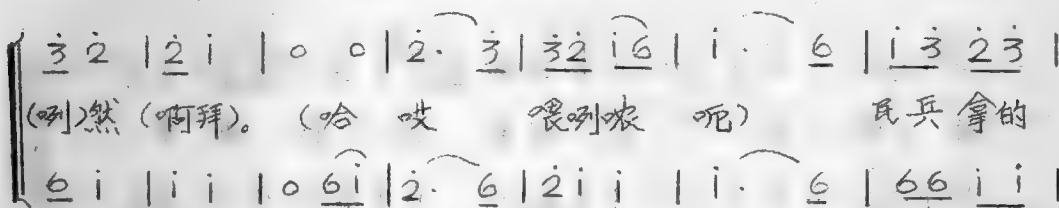 3̇ 2̇ | 2̇ i | 0 0 | 2̇· 3̇ | 3̇2̇ i6 | i· 6 | i3̇ 2̇3̇ |
(咧)然(啊拜)。(哈哎喂咧哝呃)民兵拿的
6 i | i i | 0 6i | 2̇· 6 | 2̇i i | i· 6 | 66 i i |